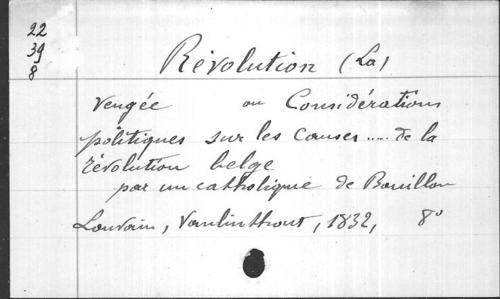 22
39
8
Révolution (La)
vengée ou Considérations
politiques sur les causes ..... de la
révolution belge
par un catholique de Bouillon
Louvain, Vanlinthout, 1832, 8°